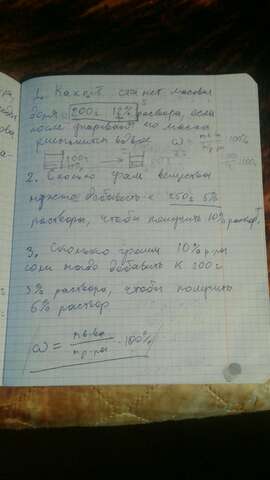 1. Какой станет массовая
доля 200г 12% раствора, если
после упаривания его масса
уменьшится вдвое
200г
2. Сколько грам вещества
нужно добавить к 250г 5%
раствора, чтобы получить 10% раствор
3. Сколько грамм 10% р-ра
соли надо добавить к 200г
5% раствора, чтобы получить
6% раствор
ω = mв-ва / mр-ра · 100%